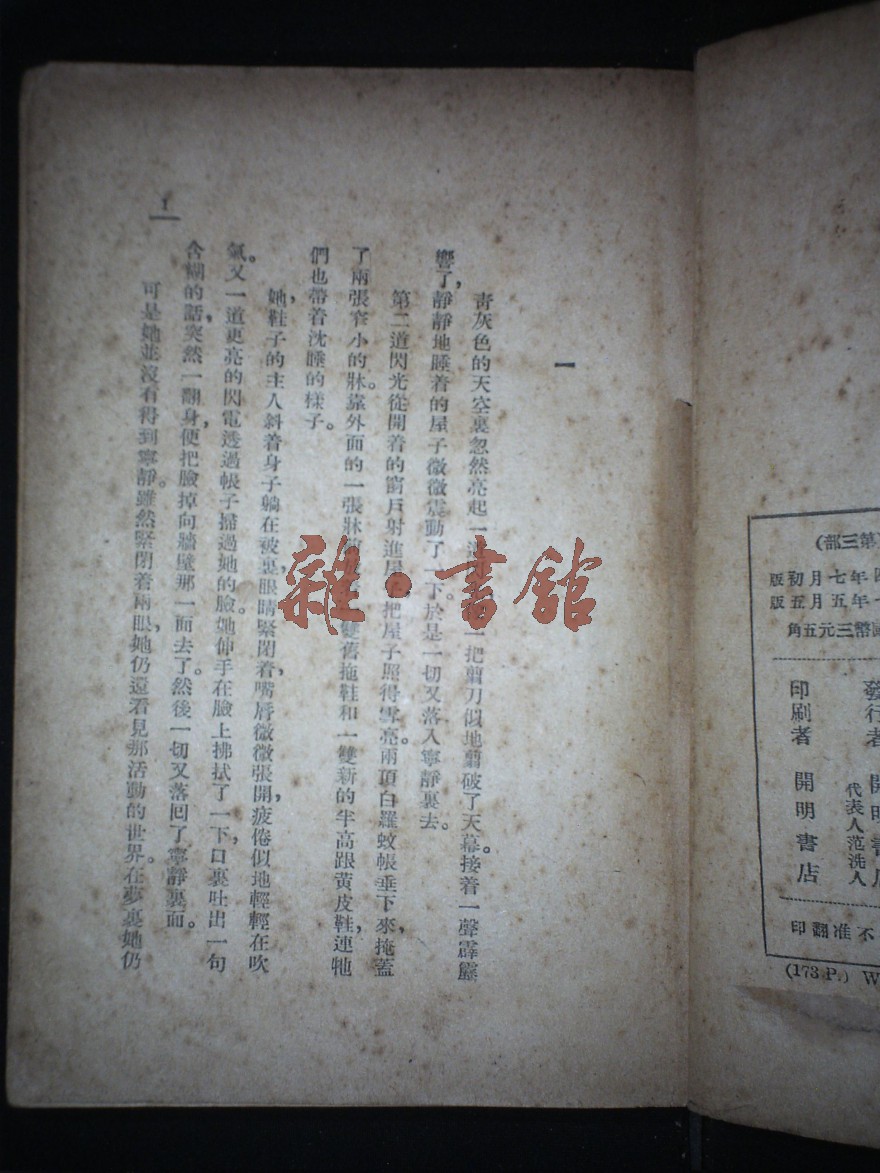 一
青灰色的天空裏忽然亮起一道一把剪刀似地剪破了天幕。接着一聲霹靂
響了，靜靜地睡着的屋子微微震動了一下。於是一切又落入寧靜裏去。
第二道閃光從開着的窗戶射進屋把屋子照得雪亮。兩頂白羅蚊帳垂下來，掩蓋
了兩張窄小的牀。靠外面的一張牀雙舊拖鞋和一雙新的半高跟黃皮鞋，連牠
們也帶着沈睡的樣子。
她，鞋子的主人斜着身子躺在被裏，眼睛緊閉着，嘴唇微微張開，疲倦似地輕輕在吹
氣。又一道更亮的閃電透過帳子掃過她的臉，她伸手在臉上拂拭了一下，口裏吐出一句
含糊的話，突然一翻身，便把臉掉向牆壁那一面去了。然後一切又落回了寧靜裏面。
可是她並沒有得到寧靜。雖然緊閉着兩眼，她仍還看見那活動的世界。在夢裏她仍
1
雜·書館
第三部)
年七月初版
年五月五版
國幣三元五角
發行者 開明書店
代表人范洗人
印刷者 開明書店
不准翻印
(173 P.) W